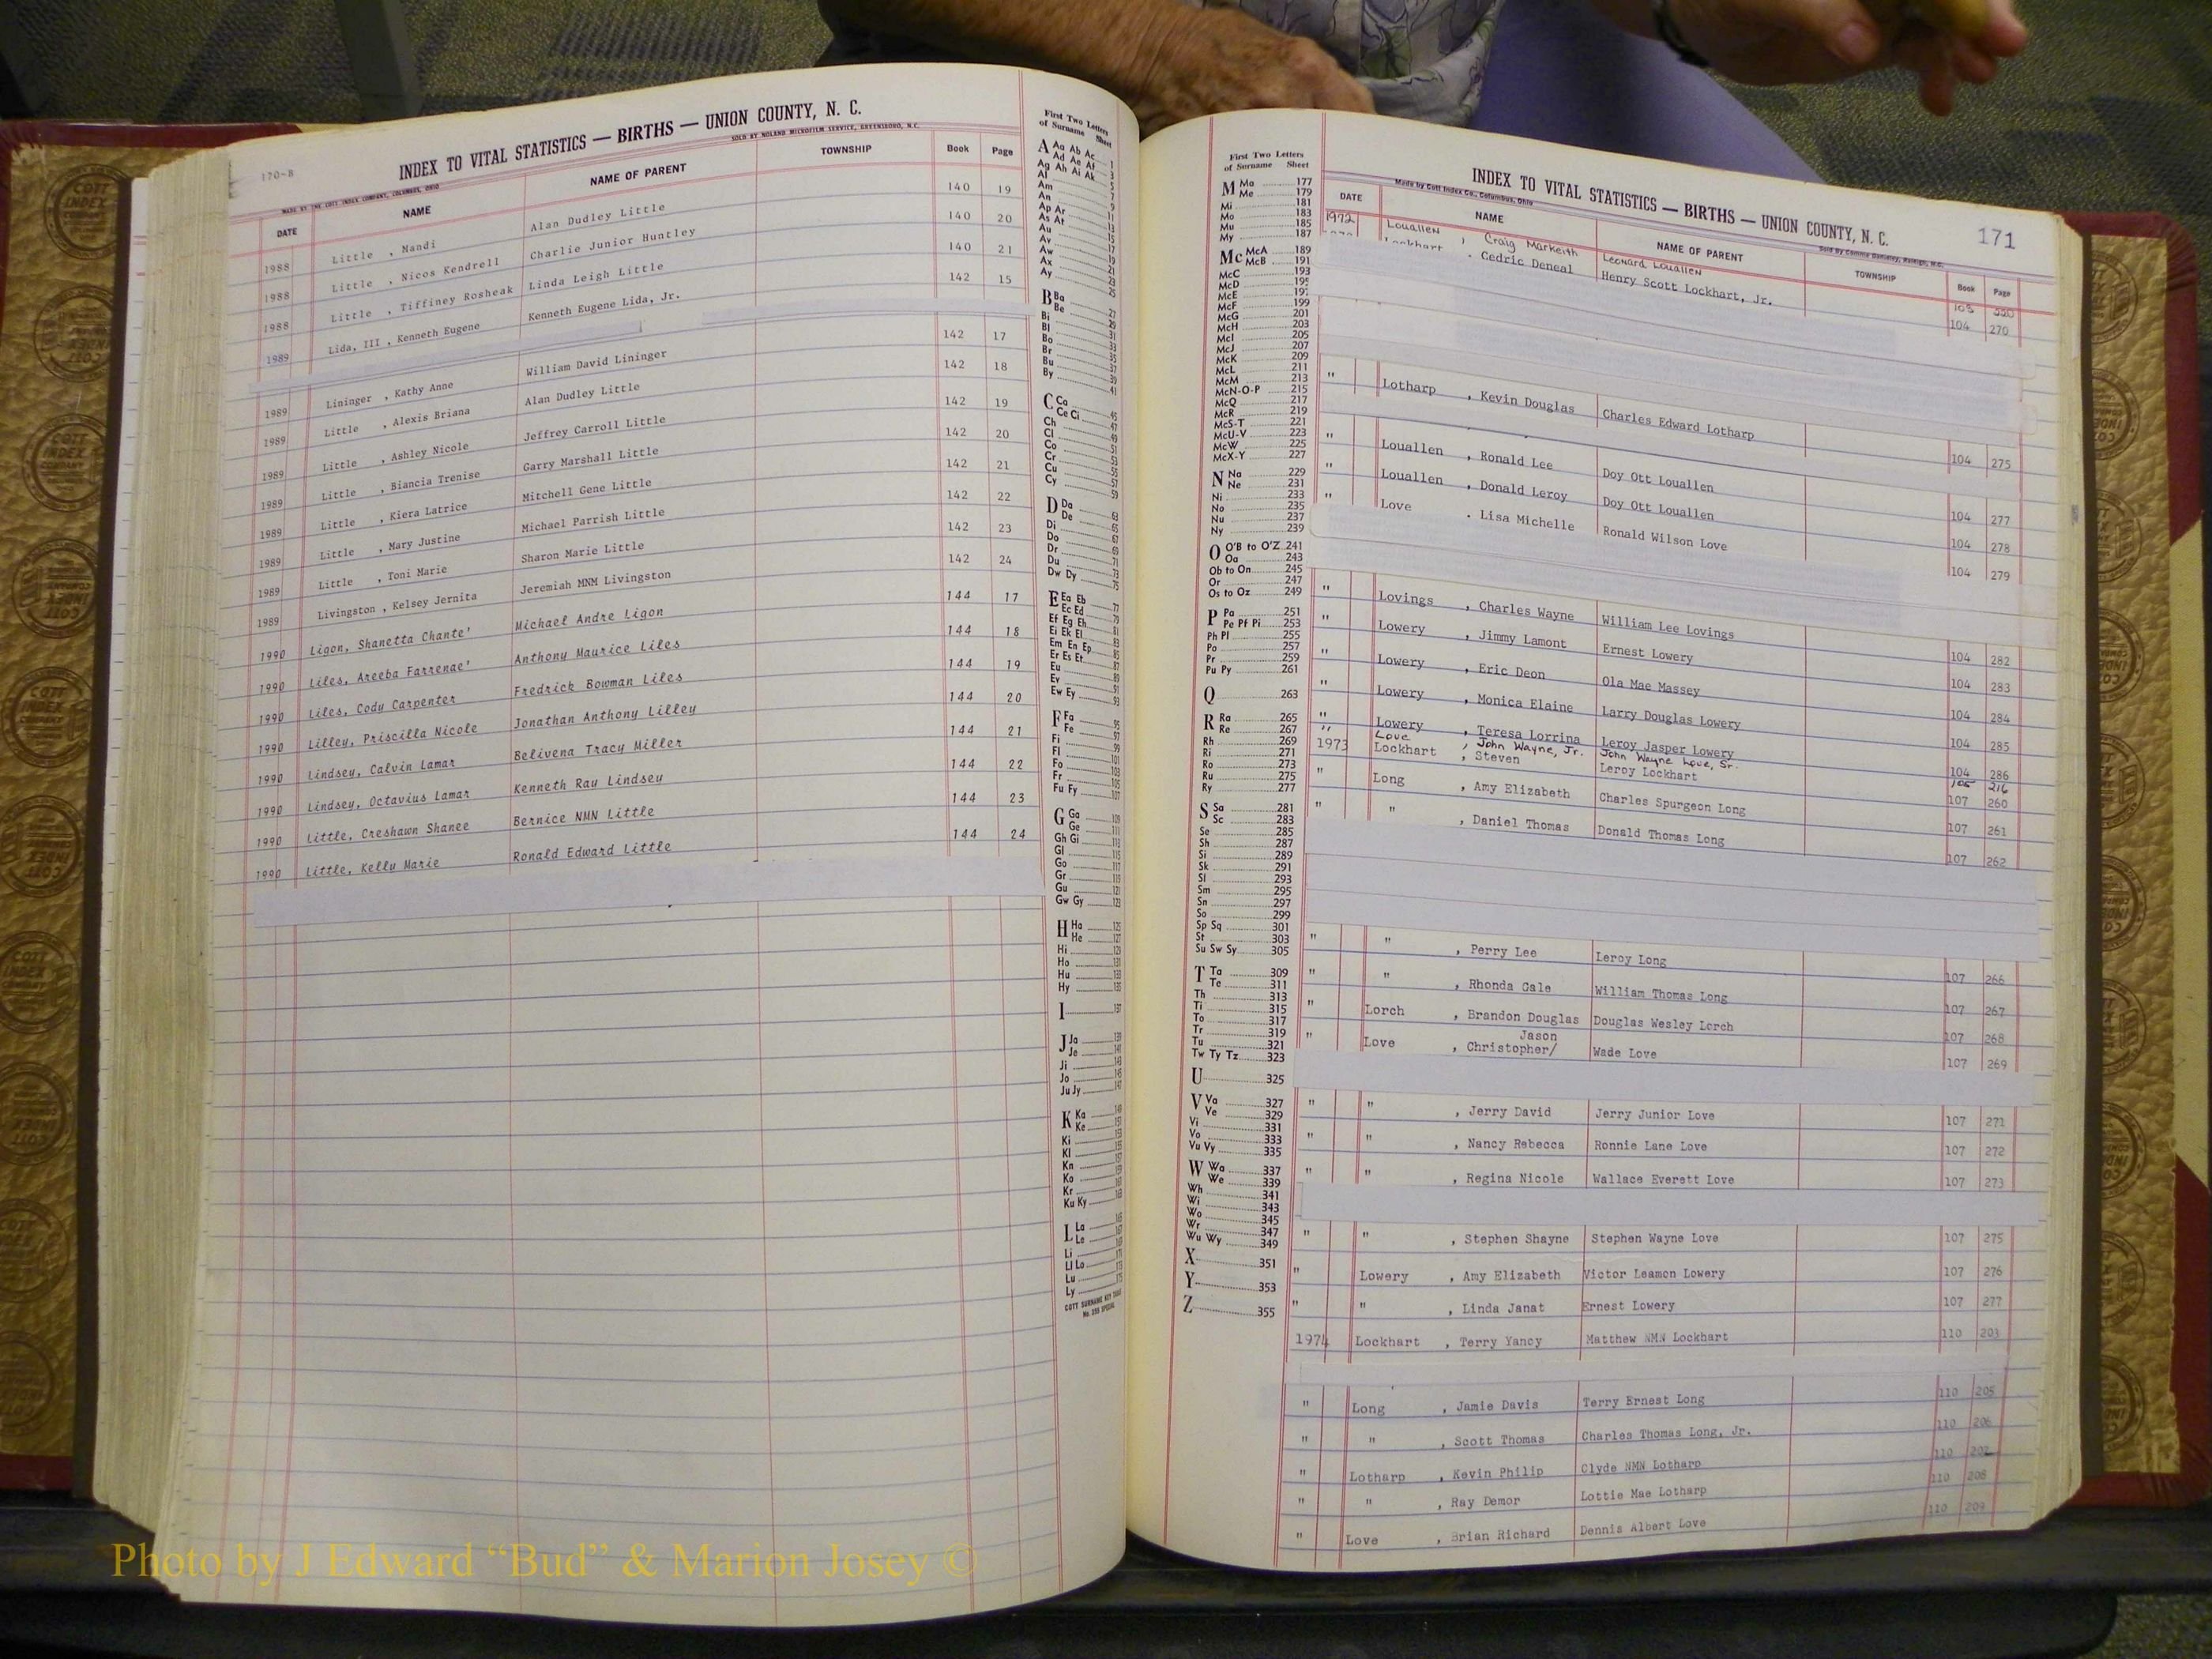 170-B
INDEX TO VITAL STATISTICS — BIRTHS — UNION COUNTY, N. C.
MADE BY THE COTT INDEX COMPANY, COLUMBUS, OHIO
SOLD BY NOLAND MICROFILM SERVICE, GREENSBORO, N.C.
DATE NAME NAME OF PARENT TOWNSHIP Book Page
1988 Little , Mandi Alan Dudley Little 140 19
1988 Little , Nicos Kendrell Charlie Junior Huntley 140 20
1988 Little , Tiffiney Rosheak Linda Leigh Little 140 21
1989 Lida, III , Kenneth Eugene Kenneth Eugene Lida, Jr. 142 15
1989 Lininger , Kathy Anne William David Lininger 142 17
1989 Little , Alexis Briana Alan Dudley Little 142 18
1989 Little , Ashley Nicole Jeffrey Carroll Little 142 19
1989 Little , Biancia Trenise Garry Marshall Little 142 20
1989 Little , Kiera Latrice Mitchell Gene Little 142 21
1989 Little , Mary Justine Michael Parrish Little 142 22
1989 Little , Toni Marie Sharon Marie Little 142 23
1989 Livingston , Kelsey Jernita Jeremiah MNM Livingston 142 24
1990 Ligon, Shanetta Chante' Michael Andre Ligon 144 17
1990 Liles, Areeba Farrenae' Anthony Maurice Liles 144 18
1990 Liles, Cody Carpenter Fredrick Bowman Liles 144 19
1990 Lilley, Priscilla Nicole Jonathan Anthony Lilley 144 20
1990 Lindsey, Calvin Lamar Belivena Tracy Miller 144 21
1990 Lindsey, Octavius Lamar Kenneth Ray Lindsey 144 22
1990 Little, Creshawn Shanee Bernice NMN Little 144 23
1990 Little, Kelly Marie Ronald Edward Little 144 24
First Two Letters
of Surname Sheet
A Aa Ab Ac 1
Ad Ae Af 3
Ag Ah Ai Ak 5
Al 7
Am 9
An 11
Ap Ar 13
As At 15
Au 17
Av 19
Aw 21
Ax 23
Ay 25
B Ba 27
Be 29
Bi 31
Bl 33
Bo 35
Br 37
Bu 39
By 41
C Ca 45
Ce Ci 47
Ch 49
Cl 51
Co 53
Cr 55
Cu 57
Cy 59
D Da 63
De 65
Di 67
Do 69
Dr 71
Du 73
Dw Dy 75
E Ea Eb 77
Ec Ed 79
Ef Eg Eh 81
Ei Ek El 83
Em En Ep 85
Er Es Et 87
Eu 89
Ev 91
Ew Ey 93
F Fa 95
Fe 97
Fi 99
Fl 101
Fo 103
Fr 105
Fu Fy 107
G Ga 109
Ge 111
Gh Gi 113
Gl 115
Go 117
Gr 119
Gu 121
Gw Gy 123
H Ha 125
He 127
Hi 129
Ho 131
Hu 133
Hy 135
I 137
J Ja 139
Je 141
Ji 143
Jo 145
Ju Jy 147
K Ka 149
Ke
Ki
Kl
Kn
Ko
Kr
Ku Ky
L La
Le
Li
Ll Lo
Lu
Ly
COTT SURNAME KEY TABLE
First Two Letters
of Surname Sheet
M Ma 177
Me 179
Mi 181
Mo 183
Mu 185
My 187
Mc McA 189
McB 191
McC 193
McD 195
McE
McF 199
McG 201
McH 203
McI 205
McJ 207
McK 209
McL 211
McM 213
McN-O-P 215
McQ 217
McR 219
McS-T 221
McU-V 223
McW 225
McX-Y 227
N Na 229
Ne 231
Ni 233
No 235
Nu 237
Ny 239
O O'B to O'Z 241
Oa 243
Ob to On 245
Or 247
Os to Oz 249
P Pa 251
Pe Pf Pi 253
Ph Pl 255
Po 257
Pr 259
Pu Py 261
Q 263
R Ra 265
Re 267
Rh 269
Ri 271
Ro 273
Ru 275
Ry 277
S Sa 281
Sc 283
Se 285
Sh 287
Si 289
Sk 291
Sl 293
Sm 295
Sn 297
So 299
Sp Sq 301
St 303
Su Sw Sy 305
T Ta 309
Te 311
Th 313
Ti 315
To 317
Tr 319
Tu 321
Tw Ty Tz 323
U 325
V Va 327
Ve 329
Vi 331
Vo 333
Vu Vy 335
W Wa 337
We 339
Wh 341
Wi 343
Wo 345
Wr 347
Wu Wy 349
X 351
Y 353
Z 355
INDEX TO VITAL STATISTICS — BIRTHS — UNION COUNTY, N. C. 171
Made by Cott Index Co., Columbus, Ohio
DATE NAME NAME OF PARENT TOWNSHIP Book Page
1972 Louallen , Craig Markeith Leonard Louallen 103 320
Lockhart , Cedric Deneal Henry Scott Lockhart, Jr. 104 270
" Lotharp , Kevin Douglas Charles Edward Lotharp 104 275
" Louallen , Ronald Lee Doy Ott Louallen 104 277
" Louallen , Donald Leroy Doy Ott Louallen 104 278
" Love . Lisa Michelle Ronald Wilson Love 104 279
" Lovings , Charles Wayne William Lee Lovings 104 282
" Lowery , Jimmy Lamont Ernest Lowery 104 283
" Lowery , Eric Deon Ola Mae Massey 104 284
" Lowery , Monica Elaine Larry Douglas Lowery 104 285
" Lowery , Teresa Lorrina Leroy Jasper Lowery 104 286
" Love , John Wayne, Jr. John Wayne Love, Sr. 105 216
1973 Lockhart , Steven Leroy Lockhart 107 260
" Long , Amy Elizabeth Charles Spurgeon Long 107 261
" " , Daniel Thomas Donald Thomas Long 107 262
" " , Perry Lee Leroy Long 107 266
" " , Rhonda Gale William Thomas Long 107 267
" Lorch , Brandon Douglas Douglas Wesley Lorch 107 268
Jason
" Love , Christopher/ Wade Love 107 269
" " , Jerry David Jerry Junior Love 107 271
" " , Nancy Rebecca Ronnie Lane Love 107 272
" " , Regina Nicole Wallace Everett Love 107 273
" " , Stephen Shayne Stephen Wayne Love 107 275
" Lowery , Amy Elizabeth Victor Leamon Lowery 107 276
" " , Linda Janat Ernest Lowery 107 277
1974 Lockhart , Terry Yancy Matthew NMN Lockhart 110 203
" Long , Jamie Davis Terry Ernest Long 110 205
" " , Scott Thomas Charles Thomas Long, Jr. 110 206
" Lotharp , Kevin Philip Clyde NMN Lotharp 110 207
" " , Ray Demor Lottie Mae Lotharp 110 208
" Love , Brian Richard Dennis Albert Love 110 209
Photo by J Edward “Bud” & Marion Josey ©